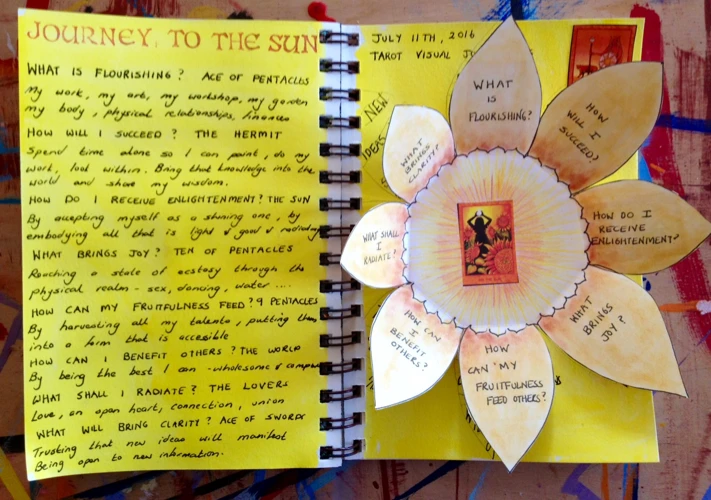 JOURNEY TO THE SUN
WHAT IS FLOURISHING? ACE OF PENTACLES
My work, my art, my workshop, my garden
my body, physical relationships, finances
HOW WILL I SUCCEED? THE HERMIT
Spend time alone so I can paint, do my
work, look within. Bring that knowledge into the
world and share my wisdom.
HOW DO I RECEIVE ENLIGHTENMENT? THE SUN
By accepting myself as a shining one, by
embodying all that is light & good & radiating
WHAT BRINGS JOY? TEN OF PENTACLES
Reaching a state of ecstasy through the
physical realm - sex, dancing, water ....
HOW CAN MY FRUITFULNESS FEED? 9 PENTACLES
By harvesting all my talents, putting them
into a form that is accessible
HOW CAN I BENEFIT OTHERS? THE WORLD
By being the best I can - wholesome &
WHAT SHALL I RADIATE? THE LOVERS
Love, an open heart, connection, union
WHAT WILL BRING CLARITY? ACE OF SWORDS
Trusting that new ideas will manifest
Being open to new information.
JULY 11TH, 2016
TAROT VISUAL
NEW
IDEAS
WHAT
IS
FLOURISHING?
HOW
WILL I
SUCCEED?
HOW DO I
RECEIVE
ENLIGHTENMENT?
WHAT
BRINGS
JOY?
HOW
CAN MY
FRUITFULNESS
FEED OTHERS?
HOW CAN
I
BENEFIT
OTHERS?
WHAT SHALL
I
RADIATE?
WHAT
BRINGS
CLARITY?